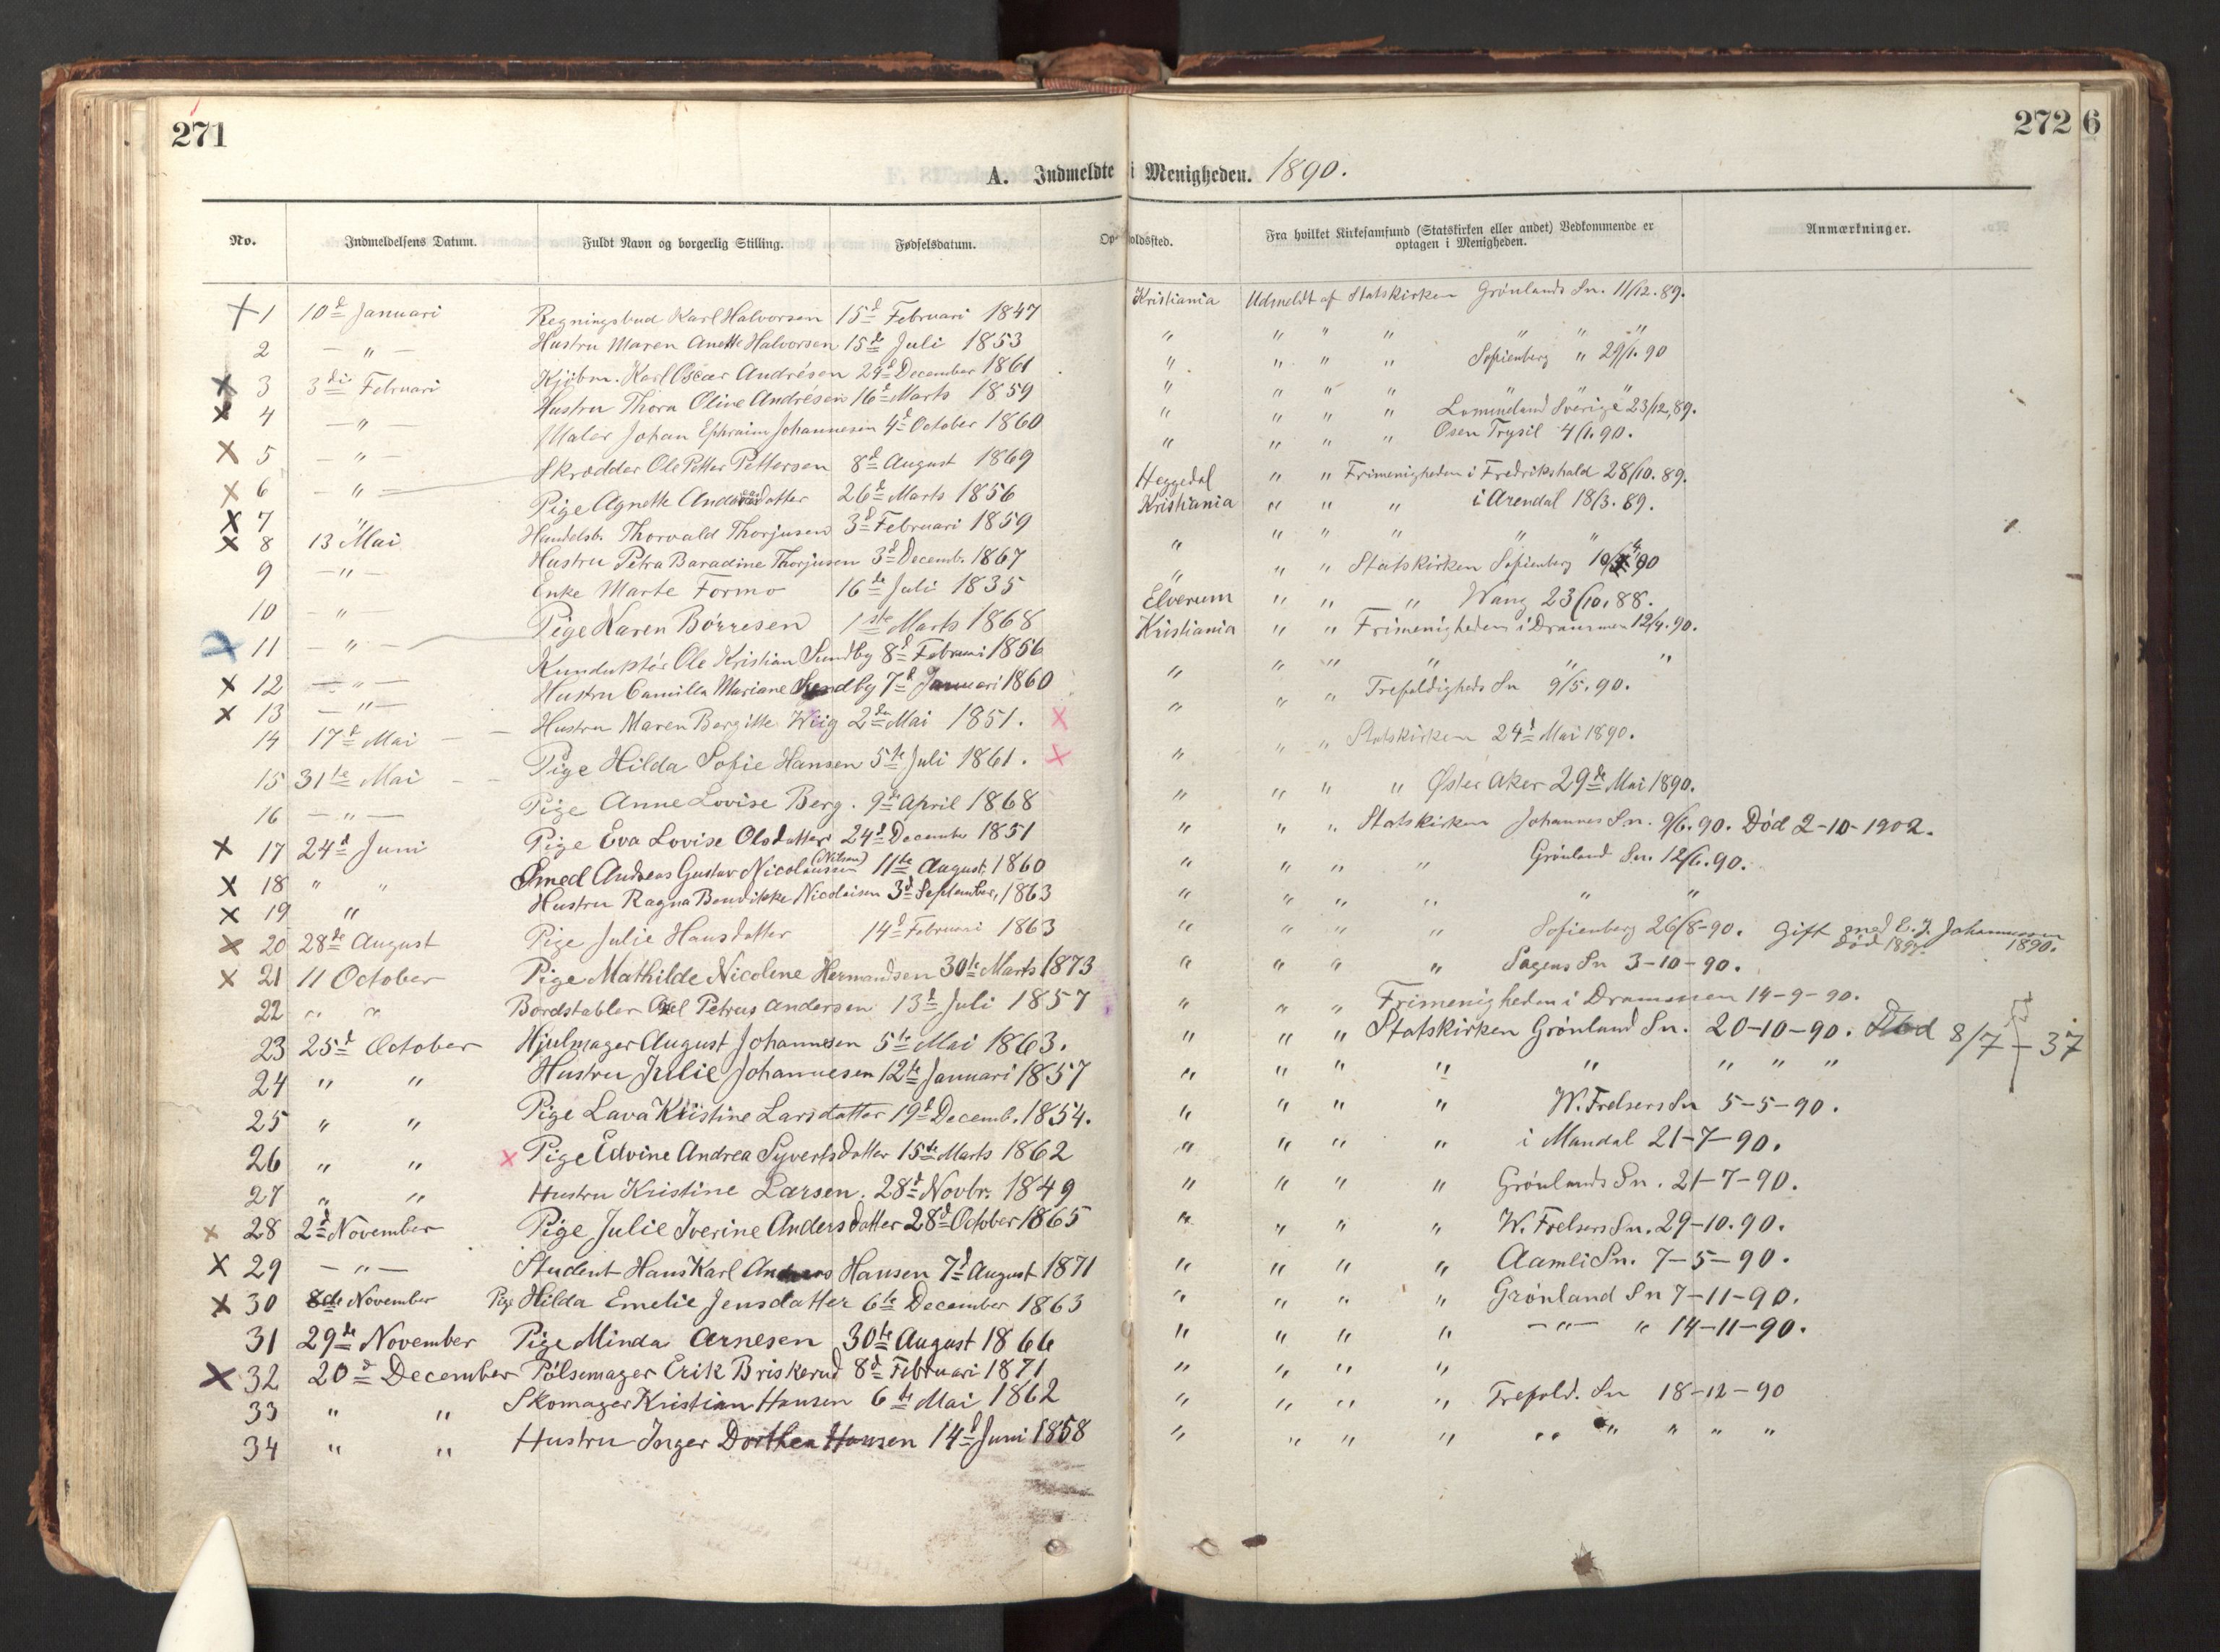 271
272 6
A. Indmeldte i Menigheden. 1890.
No. Indmeldelsens Datum. Fuldt Navn og borgerlig Stilling. Fødselsdatum. Opholdssted. Fra hvilket Kirkesamfund (Statskirken eller andet) Vedkommende er optagen i Menigheden. Anmærkninger.
X 1 10d Januari Regningsbud Karl Halvorsen 15d Februari 1847 Kristiania Udmeldt af Statskirken Grönlands Sn. 11/12.89.
2 — " — Hustru Maren Anette Halvorsen 15de Juli 1853 " " " " " " "
X 3 3die Februari Kjöbm. Karl Oscar Andrésen 29d December 1861 " " " " Sofienberg " 29/1.90
X 4 — " — Hustru Thora Oline Andrésen 16d Marts 1859 " " " " " " "
X 5 — " — Maler Johan Ephraim Johannesen 4d October 1860 " " " " Sverige 23/12,89.
X 6 — " — Skrædder Ole Petter Pettersen 8d August 1869 " " " " Osen Trysil 4/1.90.
X 7 " Pige Agnette Andersdatter 26d Marts 1856 Heggedal " " Frimenigheden i Fredrikshald 28/10.89.
X 8 13 Mai Handelsb. Thorvald Thorjusen 3d Februari 1859 Kristiania " " " i Arendal 18/3.89.
9 — " — Hustru Petra Baradine Thorjusen 3d Decemb. 1867 " " " " " "
10 — " — Enke Marte Formo 16de Juli 1835 " " " Statskirken Sofienberg 10/4 90
X 11 — " — Pige Karen Börresen 1ste Marts 1868 Elverum " " " Wang 23/10.88.
X 12 — " — Kunduktör Ole Kristian Sundby 8d Februari 1856 Kristiania " " Frimenigheden i Drammen 12/4.90.
X 13 — " — Hustru Camilla Mariane Sundby 7d Januari 1860 " " " " " "
14 17d Mai — — Hustru Maren Bergitte Wiig 2den Mai 1851. X " " " Trefoldigheds Sn 9/5.90.
15 31te Mai — — Pige Hilda Sofie Hansen 5te Juli 1861. X " " " Statskirken 24d Mai 1890.
16 — " — Pige Anne Lovise Berg. 9de April 1868 " " " " Øster Aker 29de Mai 1890.
X 17 24d Juni Pige Eva Lovise Olsdatter 24d Decembr 1851 " " " Statskirken Johannes Sn. 9/6.90. Död 2-10-1902.
X 18 " " Smed Andreas Gustav Nicolaissen (Nilsen) 11te August, 1860 " " " " Grönland Sn. 12/6.90.
X 19 " Hustru Ragna Bendikke Nicolaisen 3d September, 1863 " " " " " "
X 20 28de August Pige Julie Hansdatter 14d Februari 1863 " " " " Sofienberg 26/8-90. Gift med E. J. Johannessen 1890. död 1897.
X 21 11 October Pige Mathilde Nicoline Hermandsen 30te Marts 1873 " " " " Sagens Sn 3-10-90.
22 " " Bordstabler Axel Petrus Andersen 13d Juli 1857 " " " Frimenigheden i Drammen 14-9-90.
23 25d October Hjulmager August Johannesen 5te Mai 1863. " " " Statskirken Grönland Sn. 20-10-90. Död 8/7 - 37
24 " " Hustru Julie Johannesen 12te Januari 1857 " " " " " " " "
25 " " Pige Lava Kristine Larsdatter 19d Decemb. 1854. " " " " W. Frelsers Sn 5-5-90.
26 " " X Pige Edvine Andrea Syvertsdatter 15de Marts 1862 " " " " i Mandal 21-7-90.
27 " " Hustru Kristine Larsen. 28d Novbr. 1849 " " " " Grönlands Sn. 21-7-90.
X 28 2d November Pige Julie Iverine Andersdatter 28d October 1865 " " " " W. Frelsers Sn. 29-10.90.
X 29 — " — Student Hans Karl Andreas Hansen 7d August 1871 " " " " Aamli Sn. 7-5-90.
X 30 8de November Pige Hilda Emelie Jensdatter 6te December 1863 " " " " Grönland Sn 7-11-90.
31 29de November Pige Minda Arnesen 30te August 1866 " " " " — " — " 14-11-90.
X 32 20d December Pölsemager Erik Briskerud 8d Februari 1871 " " " "
33 " " Skomager Kristian Hansen 6te Mai 1862 " " " " Trefold. Sn 18-12-90
34 " " Hustru Inger Dorthea Hansen 14d Juni 1858 " " " " " " " " "